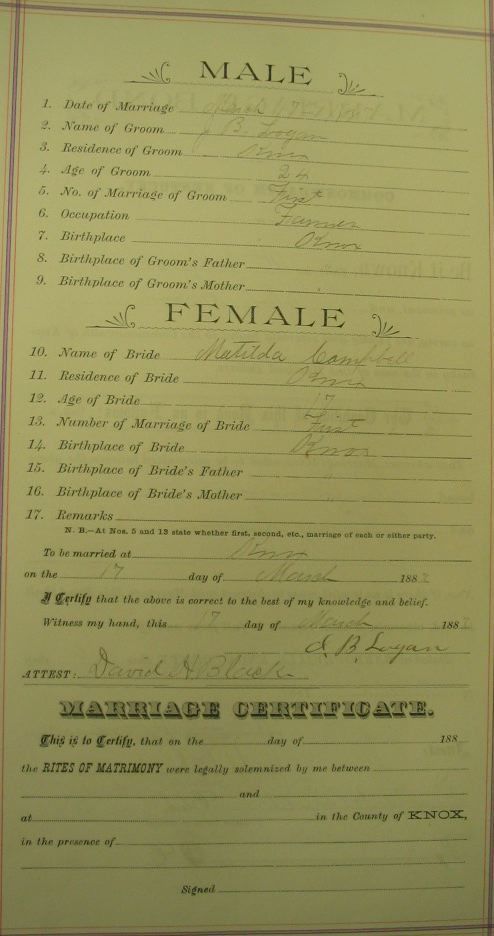 MALE
1. Date of Marriage March 17
2. Name of Groom J B Logan
3. Residence of Groom Knox
4. Age of Groom 24
5. No. of Marriage of Groom First
6. Occupation Farmer
7. Birthplace Knox
8. Birthplace of Groom's Father
9. Birthplace of Groom's Mother
FEMALE
10. Name of Bride Matilda Campbell
11. Residence of Bride Knox
12. Age of Bride 17
13. Number of Marriage of Bride First
14. Birthplace of Bride Knox
15. Birthplace of Bride's Father "
16. Birthplace of Bride's Mother "
17. Remarks
N. B.—At Nos. 5 and 13 state whether first, second, etc., marriage of each or either party.
To be married at Knox
on the 17 day of March 188
I Certify that the above is correct to the best of my knowledge and belief.
Witness my hand, this 17 day of March 188
J. B. Logan
ATTEST: David H Black
MARRIAGE CERTIFICATE.
This is to Certify, that on the day of 188
the RITES OF MATRIMONY were legally solemnized by me between
and
at in the County of KNOX,
in the presence of
Signed